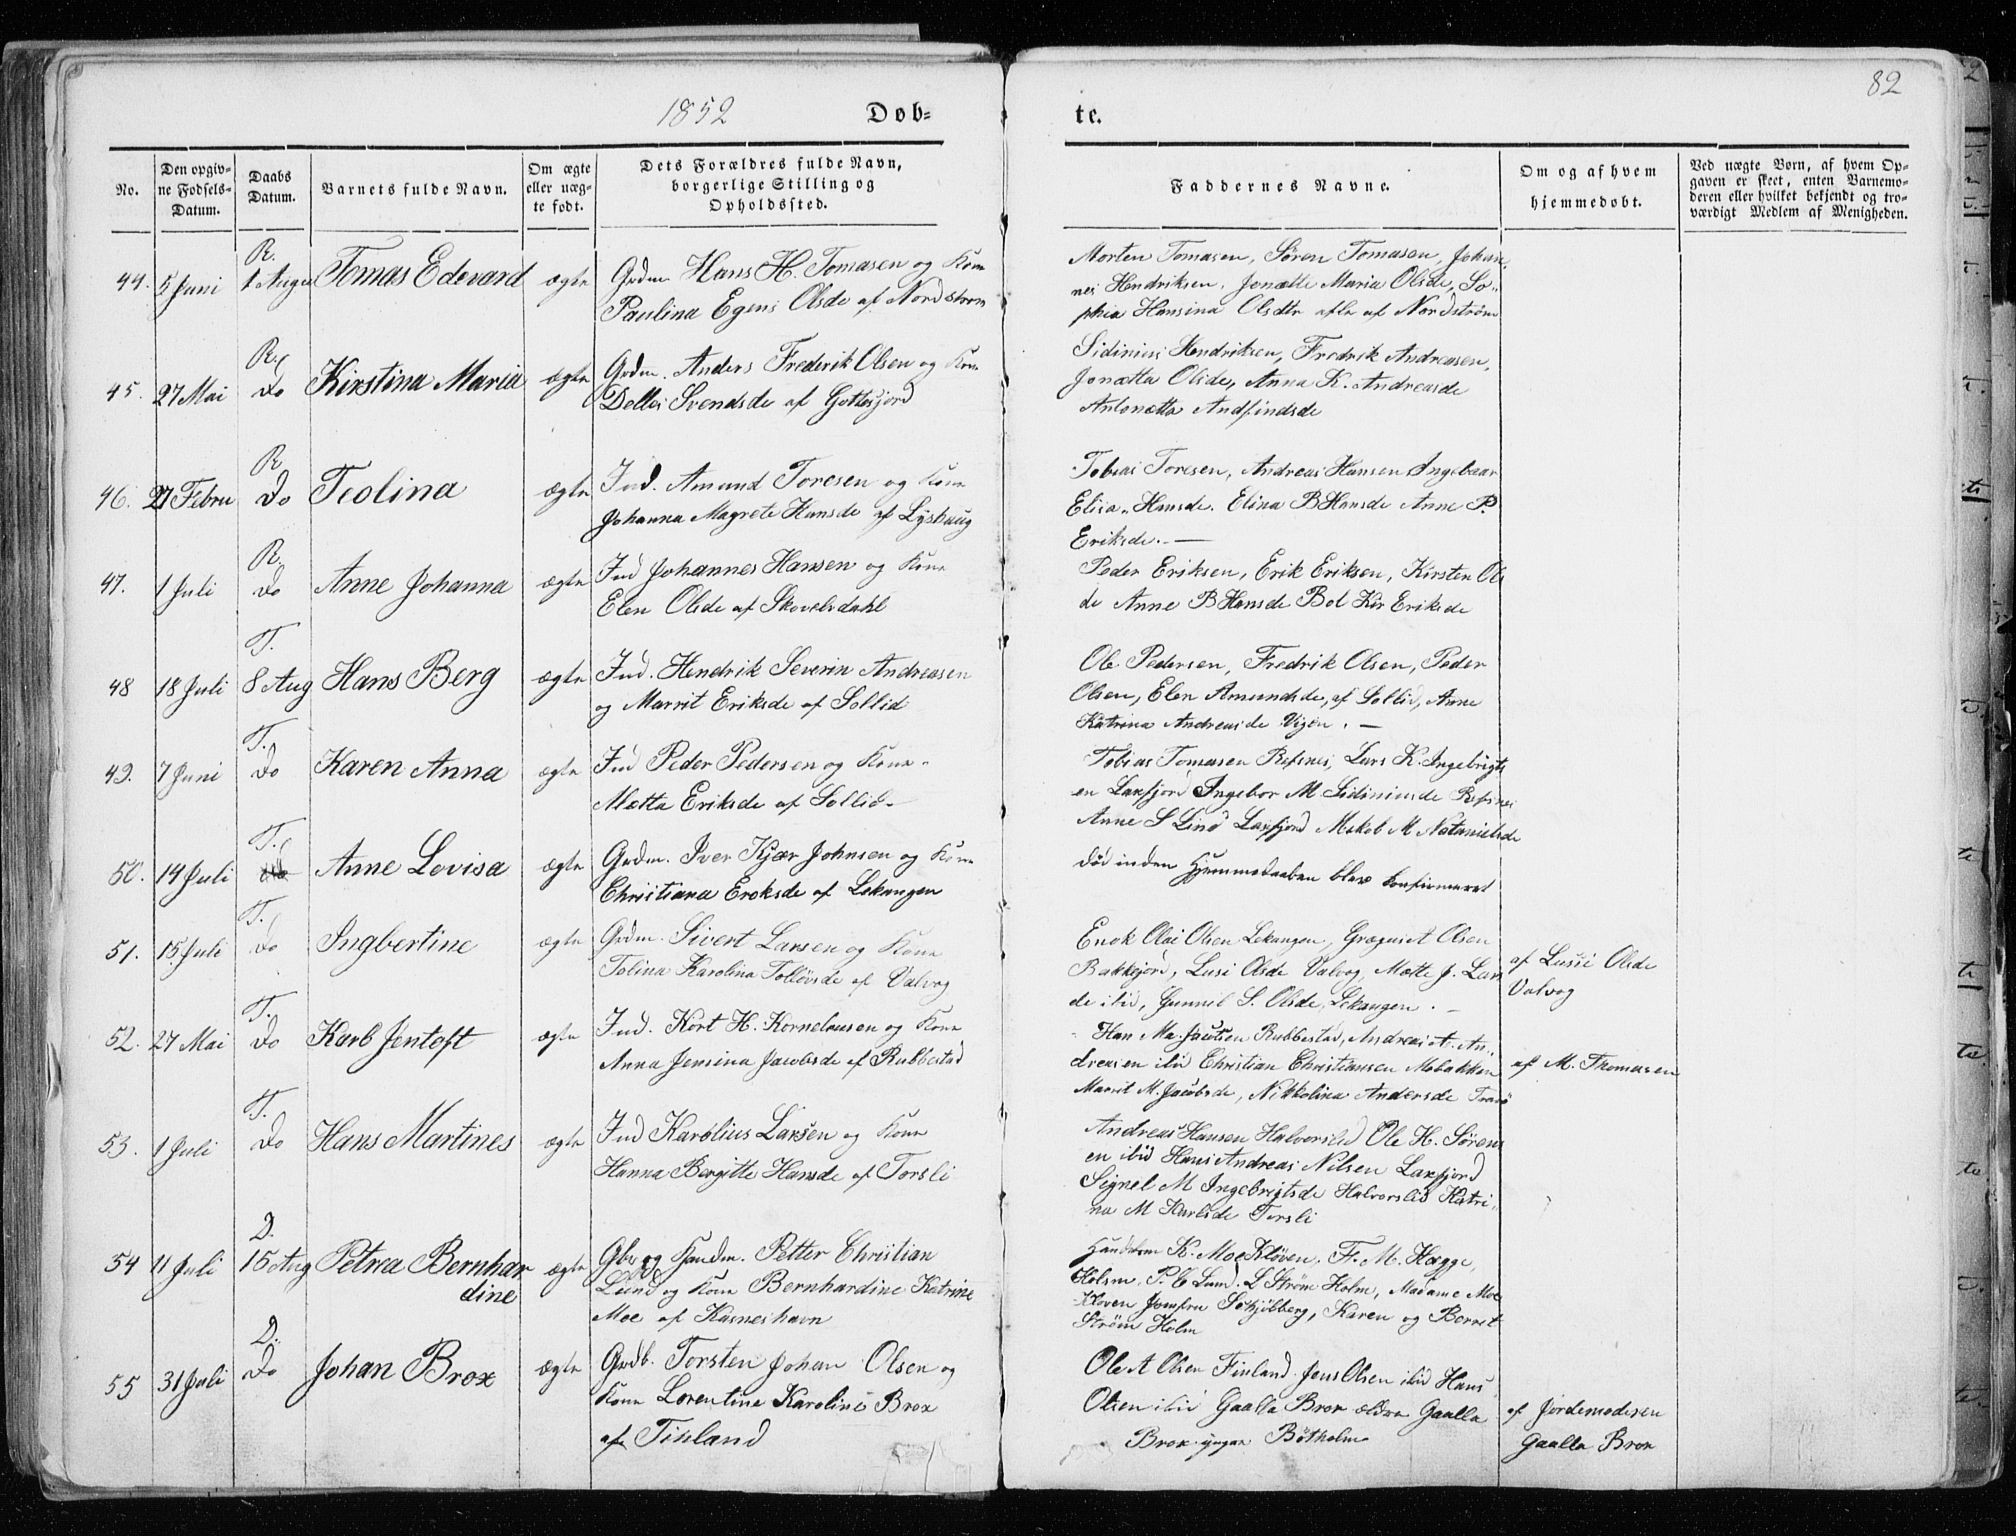 82
1852 Døb- te.
No.
Den opgiv-
ne Fødsels-
Datum.
Daabs
Datum.
Barnets fulde Navn.
Om ægte
eller uæg-
te født.
Dets Forældres fulde Navn,
borgerlige Stilling og
Opholdssted.
Faddernes Navne.
Om og af hvem
hjemmedøbt.
Ved uægte Børn, af hvem Op-
gaven er skeet, enten Barnemo-
deren eller hvilket bekjendt og tro-
værdigt Medlem af Menigheden.
R.
44. 5 Juni 1 August Tomas Edevard ægte Grdm. Hans H. Tomasen og Kone
Paulina Egens Olsde af Nordstrøm
Morten Tomasen, Sören Tomasen, Johan-
nes Hendriksen, Jonætte Maria Olsde, So-
phia Hansina Olsdtr alle af Nordstrøm
R.
45. 27 Mai Do Kirstina Maria ægte Grdm. Anders Frederik Olsen og Kone
Delles Svendsde af Gottesjord
Sidinius Hendriksen, Fredrik Andreasen,
Jonætta Olsde, Anna K. Andreasde
Antonætta Andfindsde
R
46. 27 Febru Do Teolina ægte Ind. Amund Toresen og Kone
Johanna Magrete Hansde af Lyshaug
Tobias Toresen, Andreas Hansen Ingebear
Elisa Hansde. Elina B Hansde Anne P.
Eriksde. —
R.
47. 1 Juli Do Anne Johanna ægte Ind Johannes Hansen og Kone
Elen Olsde af Skovelsdahl
Peder Eriksen, Erik Eriksen, Kirsten Ols
de Anne B Hansde Bol Kir Eriksde
T.
48 18 Juli 8 Aug Hans Berg ægte Ind. Hendrik Severin Andreasen
og Marrit Eriksde af Sollid
Ole Pedersen, Fredrik Olsen, Peder
Olsen, Elen Amundsde, af Sollid, Anne
Katrina Andreasde Vigen. —
T.
49. 7 Juni Do Karen Anna ægte Ind Peder Pedersen og Kone
Mætta Eriksde af Sollid
Tobias Tomasen Refsnes, Lars K. Ingebrigts
en Laxfjord Ingebor M. Sidiniusde Refsnes
Anne S Lind Laxfjord Makob M Natanielsde
T.
50. 14 Juli Do Anne Lovisa ægte Grdm. Iver Kjær Johnsen og Kone
Christiana Eroksde af Lekangen
død inden Hjemmedaaben blev konfirmeret
T.
51. 15 Juli Do Ingbertine ægte Grdm. Sivert Larsen og Kone
Tolina Karolina Tollövsde af Valvog
Enok Olai Olsen Lekangen, Græguset Olsen
Bakkejord, Lusi Olsde Valvog, Mætte J. Lars
de ibid, Gunnil S. Olsde, Lekangen. —
af Lussi Olsde
Valvog
T.
52. 27 Mai Do Karb Jentoft ægte Ind. Kort H. Korneliusen og Kone
Anna Jensina Jacobsde af Rubbestad
Han Ma. Jacobsen Rubbestad, Andreas A. An-
dreasen ibid Christian Christiansen Mobakken
Marrit M. Jacobsde, Nikkolina Andersde Tranö
af M. Thomasen
T.
53. 1 Juli Do Hans Martines ægte Ind Karolius Larsen og Kone
Hanna Bergitte Hansde af Torsli
Andreas Hansen Halvorslid Ole H. Sørens
en ibid Hans Andreas Nilsen Laxfjord
Signel M Ingebrigtsde Halvorslid Katri-
na M Karlsde Torsli
D.
54 11 Juli 15 Aug Petrea Bernhar
dine ægte Gbr og Handm. Petter Christian
Lund og Kone Bernhardine Katrine
Moe af Kasneshavn
Handelsm K. Moe Klöven, Fr. M. Hagge,
Holsm. P. C Lund. L Strøm Holm, Madame Moe
Klöven Jomfru Schjölberg, Karen og Berret
Strøm Holm
D.
55 31 Juli Do Johan Brox ægte Grdb. Torsten Johan Olsen og
Kone Lorentine Karoline Brox
af Finland
Ole A Olsen Finland Jens Olsen ibid Hans
Olsen ibid Gaalla Brox ældre Gaalla
Brox yngre Bötholm
af Jordemoderen
Gaalla Brox